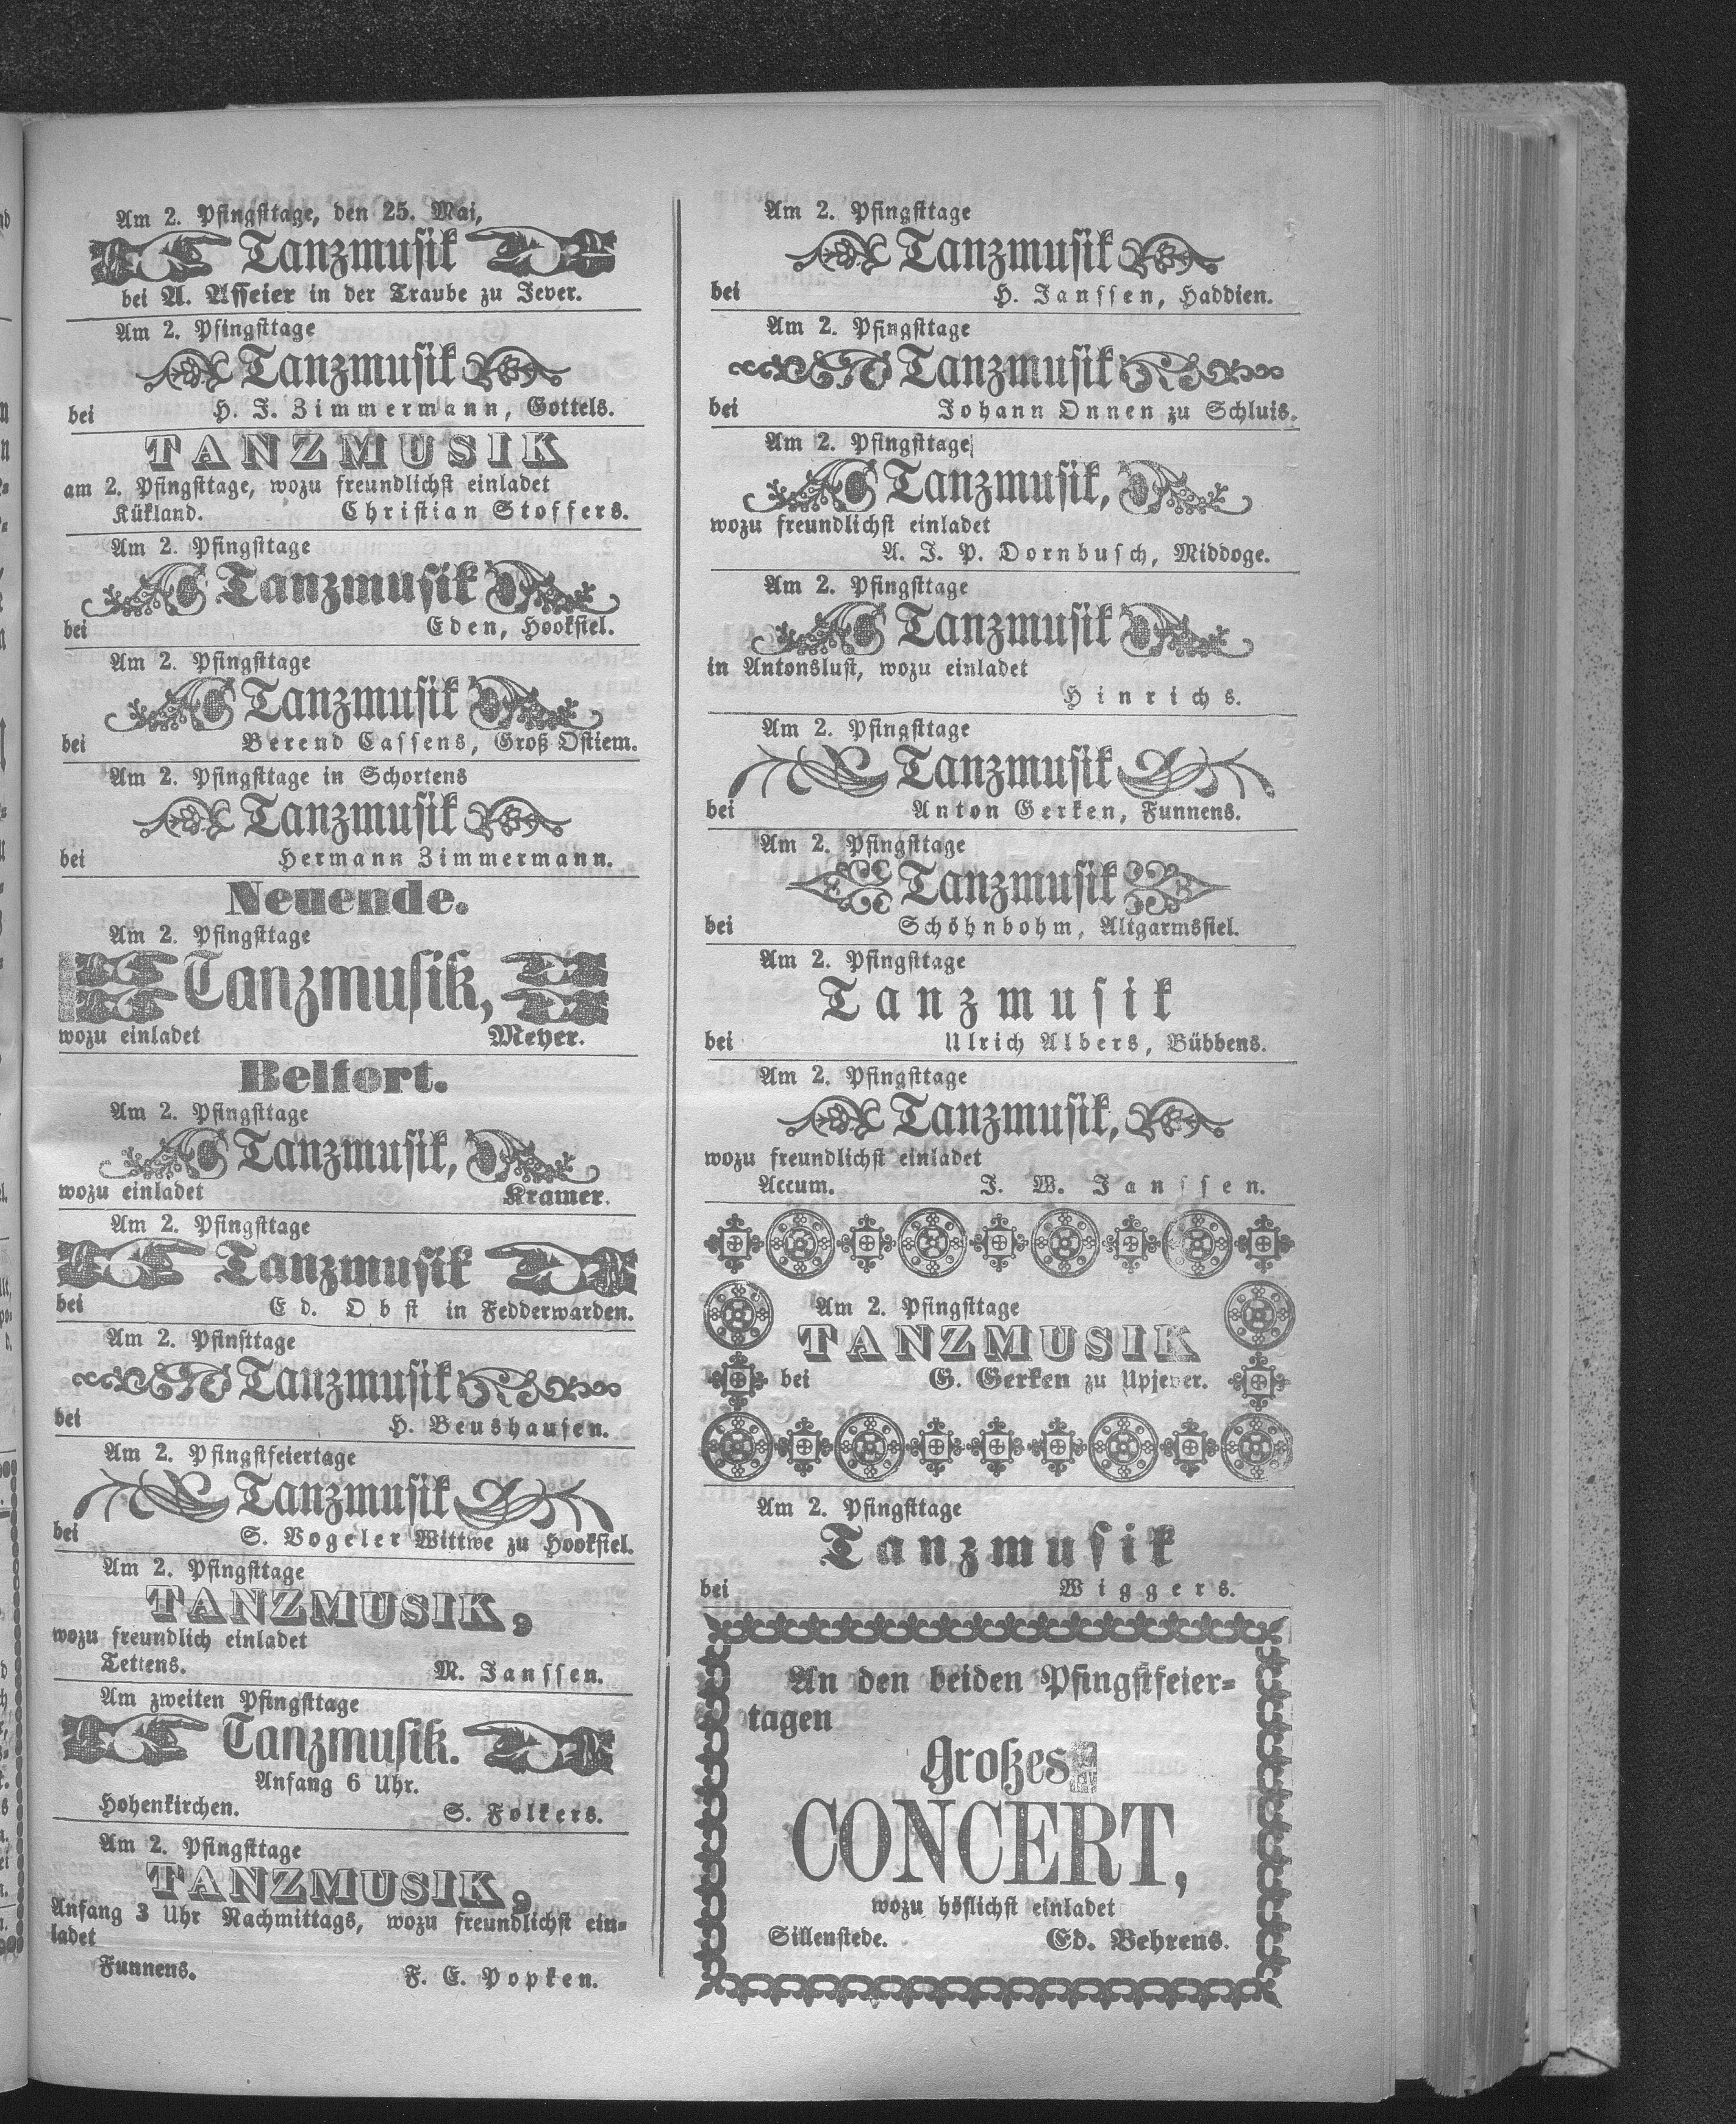 Am 2. Pfingsttage, den 25. Mai,
Tanzmusik
bei A. Affeier in der Traube zu Jever.
Am 2. Pfingsttage
Tanzmusik
bei H. J. Zimmermann, Gottels.
TANZMUSIK
am 2. Pfingsttage, wozu freundlichst einladet
Kükland. Christian Stoffers.
Am 2. Pfingsttage
Tanzmusik
bei Eden, Hooksiel.
Am 2. Pfingsttage
Tanzmusik
bei Berend Cassens, Groß Ostiem.
Am 2. Pfingsttage in Schortens
Tanzmusik
bei Hermann Zimmermann.
Neuende.
Am 2. Pfingsttage
Tanzmusik,
wozu einladet Meyer.
Belfort.
Am 2. Pfingsttage
Tanzmusik,
wozu einladet Kramer.
Am 2. Pfingsttage
Tanzmusik
bei Ed. Obst in Fedderwarden.
Am 2. Pfinsttage
Tanzmusik
bei H. Beushausen.
Am 2. Pfingstfeiertage
Tanzmusik
bei S. Vogeler Wittwe zu Hooksiel.
Am 2. Pfingsttage
TANZMUSIK,
wozu freundlich einladet
Tettens. M. Janssen.
Am zweiten Pfingsttage
Tanzmusik.
Anfang 6 Uhr.
Hohenkirchen. S. Folkers.
Am 2. Pfingsttage
TANZMUSIK,
Anfang 3 Uhr Nachmittags, wozu freundlichst ein-
ladet
Funnens. F. E. Popken.
Am 2. Pfingsttage
Tanzmusik
bei H. Janssen, Haddien.
Am 2. Pfingsttage
Tanzmusik
bei Johann Onnen zu Schluis.
Am 2. Pfingsttage
Tanzmusik,
wozu freundlichst einladet
A. J. P. Dornbusch, Middoge.
Am 2. Pfingsttage
Tanzmusik
in Antonslust, wozu einladet
Hinrichs.
Am 2. Pfingsttage
Tanzmusik
bei Anton Gerken, Funnens.
Am 2. Pfingsttage
Tanzmusik
bei Schöhnbohm, Altgarmssiel.
Am 2. Pfingsttage
Tanzmusik
bei Ulrich Albers, Bübbens.
Am 2. Pfingsttage
Tanzmusik,
wozu freundlichst einladet
Accum. J. W. Janssen.
Am 2. Pfingsttage
TANZMUSIK
bei G. Gerken zu Upjever.
Am 2. Pfingsttage
Tanzmusik
bei Wiggers.
An den beiden Pfingstfeier-
tagen
Großes
CONCERT,
wozu höflichst einladet
Sillenstede. Ed. Behrens.